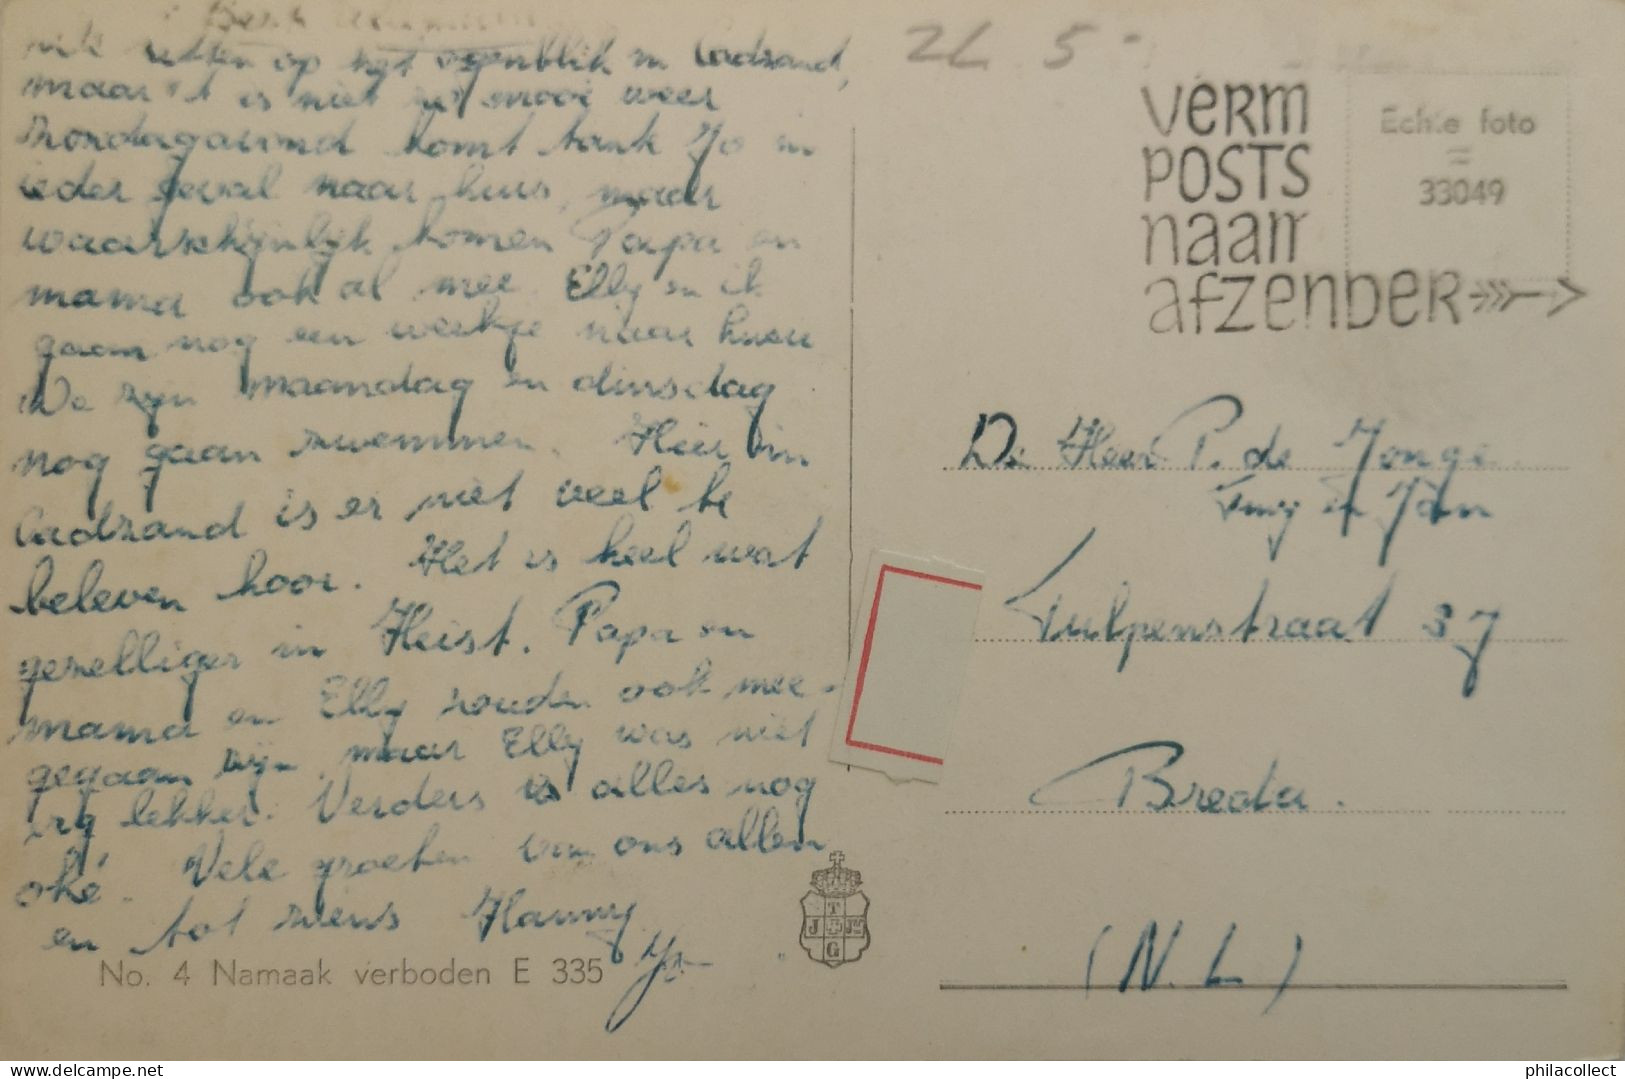 zitten op het ogenblik in Cadzand,
maar 't is niet zo mooi weer
Donderdagavond komt tante Jo in
ieder geval naar huis, maar
waarschijnlijk komen Papa en
mama ook al mee. Elly en ik
gaan nog een weekje naar huis
We zijn maandag en dinsdag
nog gaan zwemmen. Hier in
Cadzand is er niet veel te
beleven hoor. Het is heel wat
gezelliger in Heist. Papa en
mama en Elly zouden ook mee
gegaan zijn, maar Elly was niet
erg lekker. Verders is alles nog
oké. Vele groeten van ons allen
en tot ziens Hanny
Jo
No. 4 Namaak verboden E 335
T
J
G
ZL 5-
VERM
POSTS
naam
afzender
Echte foto
=
33049
De Heer P. de Jonge
en Jan
Tulpenstraat 37
Breda.
(N.L)
philacollect